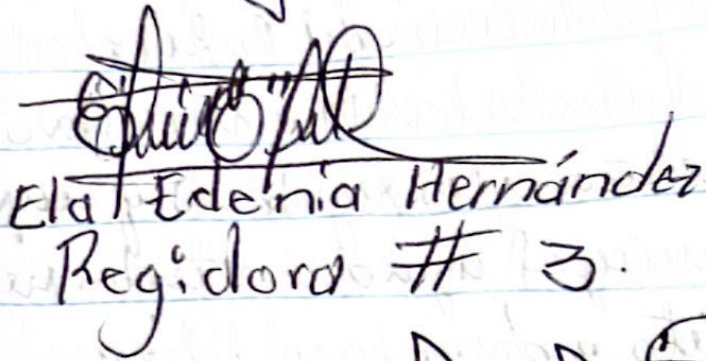 Ela Edenia Hernández
Regidora # 3.